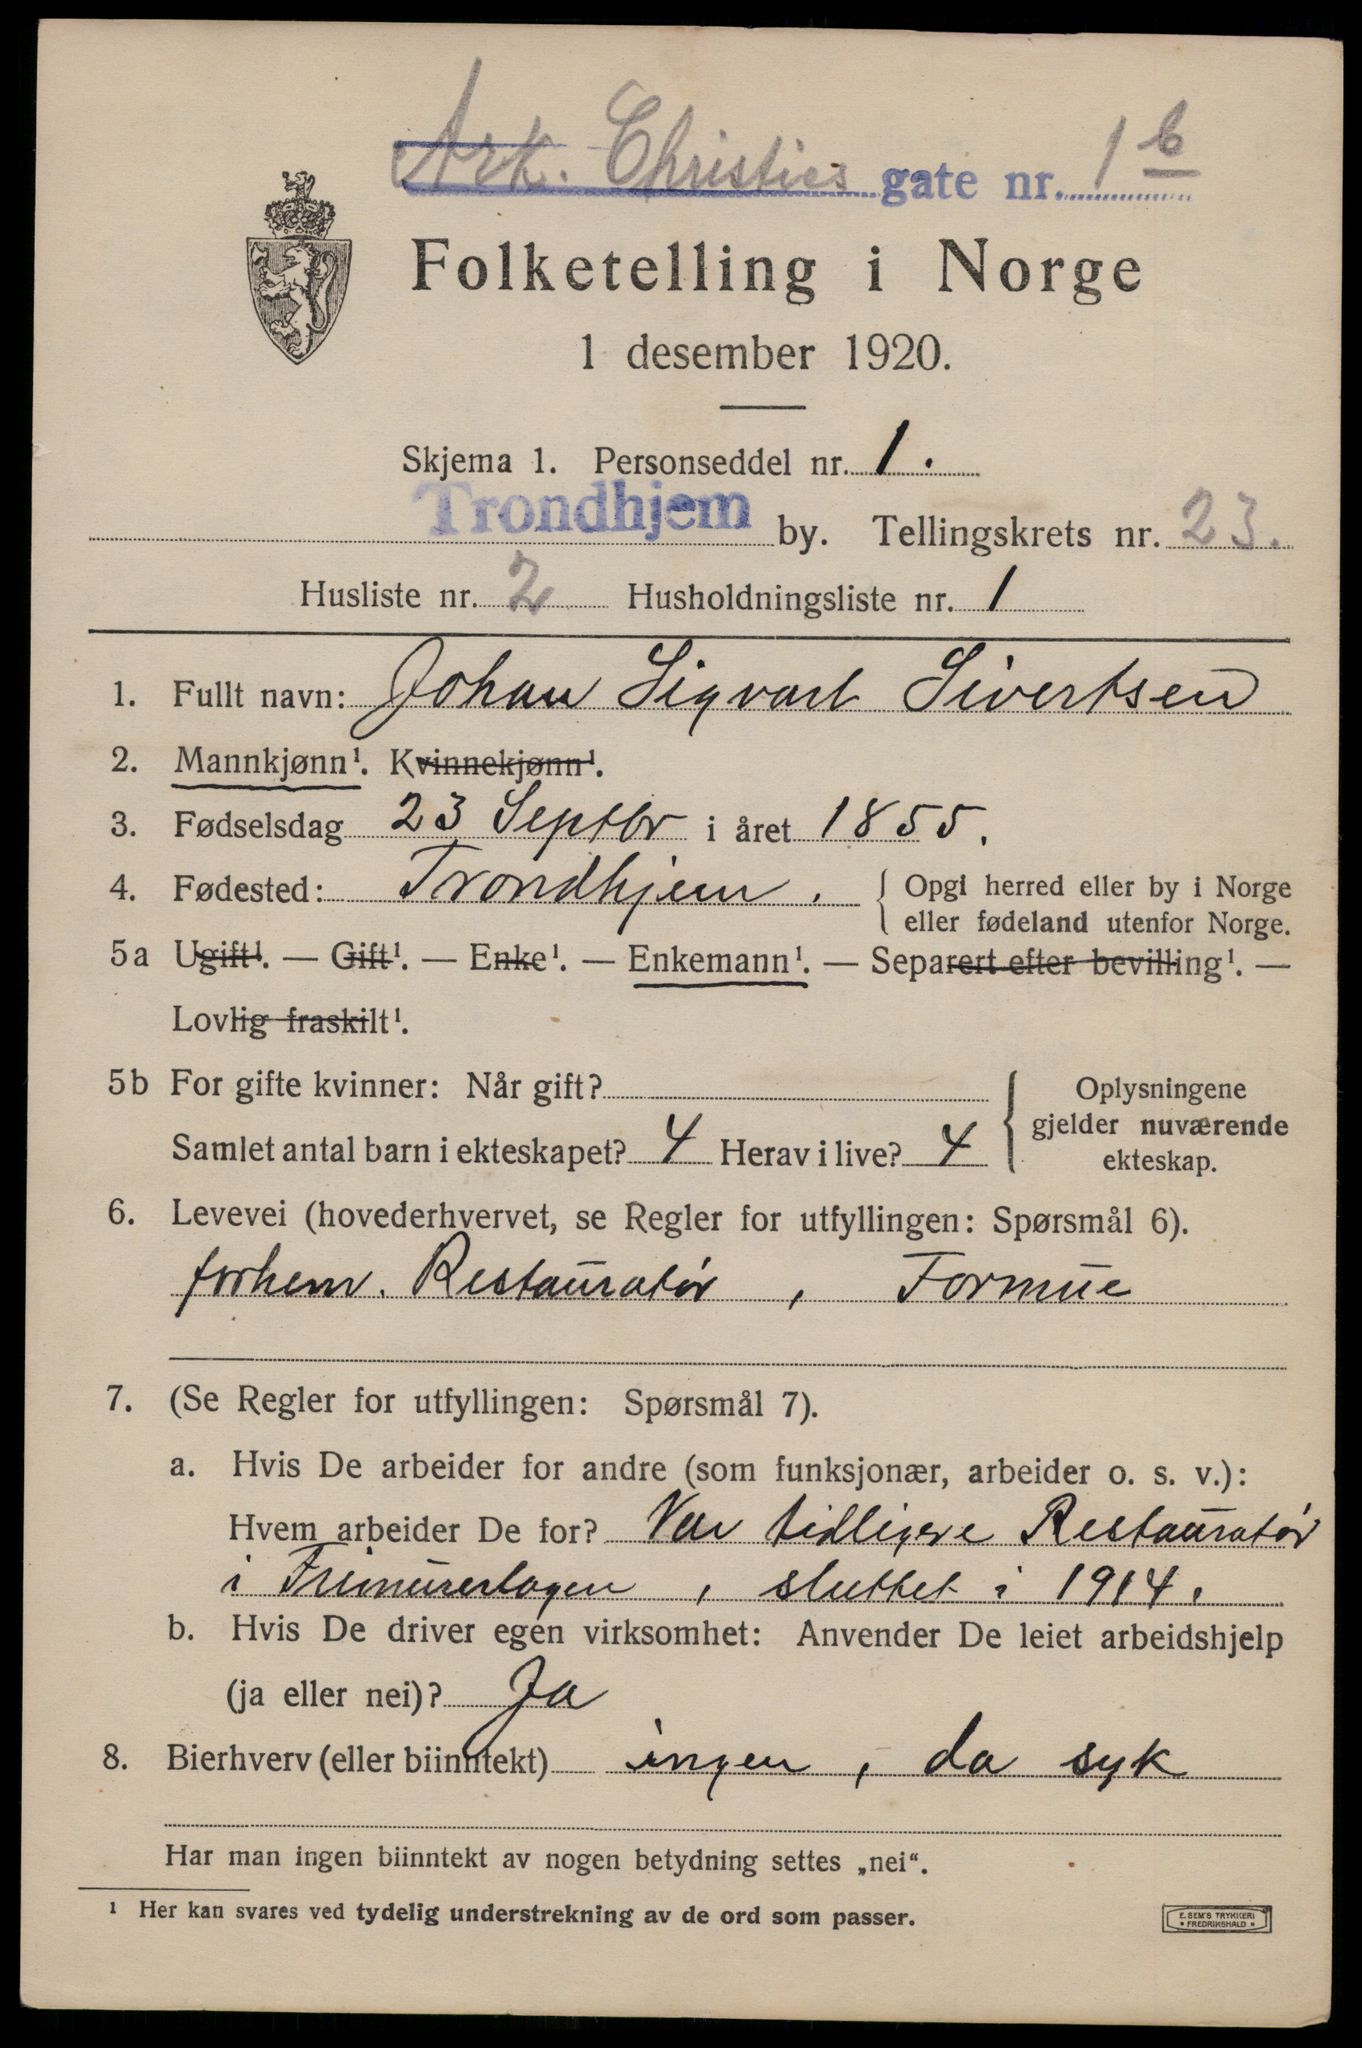 Ark. Christies gate nr. 1 b
Folketelling i Norge
1 desember 1920.
Skjema 1. Personseddel nr. 1.
Trondhjem by. Tellingskrets nr. 23.
Husliste nr. 2 Husholdningsliste nr. 1
1. Fullt navn: Johan Sigvart Sivertsen
2. Mannkjønn¹. Kvinnekjønn¹.
3. Fødselsdag 23 Septbr i året 1855.
4. Fødested: Trondhjem. { Opgi herred eller by i Norge
eller fødeland utenfor Norge.
5a Ugift¹. — Gift¹. — Enke¹. — Enkemann¹. — Separert efter bevilling¹. —
Lovlig fraskilt¹.
5b For gifte kvinner: Når gift?
Samlet antal barn i ekteskapet? 4 Herav i live? 4
Oplysningene
gjelder nuværende
ekteskap.
6. Levevei (hovederhvervet, se Regler for utfyllingen: Spørsmål 6).
forhenv. Restauratør, Formue
7. (Se Regler for utfyllingen: Spørsmål 7).
a. Hvis De arbeider for andre (som funksjonær, arbeider o. s. v.):
Hvem arbeider De for? Var tidligere Restauratør
i Frimurerlogen, sluttet i 1914.
b. Hvis De driver egen virksomhet: Anvender De leiet arbeidshjelp
(ja eller nei)? Ja
8. Bierhverv (eller biinntekt) ingen, da syk
Har man ingen biinntekt av nogen betydning settes „nei“.
¹ Her kan svares ved tydelig understrekning av de ord som passer.
E. SEM'S TRYKKERI
FREDRIKSHALD